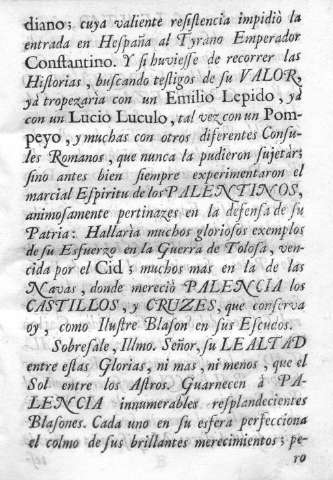 diano; cuya valiente resistencia impidiò la
entrada en Hespaña al Tyrano Emperador
Constantino. Y si huviesse de recorrer las
Historias, buscando testigos de su VALOR,
yà tropezaria con un Emilio Lepido, yà
con un Lucio Luculo, tal vez con un Pom-
peyo, y muchas con otros diferentes Consu-
les Romanos, que nunca la pudieron sujetar;
sino antes bien siempre experimentaron el
marcial Espiritu de los PALENTINOS,
animosamente pertinazes en la defensa de su
Patria: Hallaria muchos gloriosos exemplos
de su Esfuerzo en la Guerra de Tolosa, ven-
cida por el Cid; muchos mas en la de las
Navas, donde mereciò PALENCIA los
CASTILLOS, y CRUZES, que conserva
oy, como Ilustre Blason en sus Escudos.
Sobresale, Illmo. Señor, su LEALTAD
entre estas Glorias, ni mas, ni menos, que el
Sol entre los Astros. Guarnecen à PA-
LENCIA innumerables resplandecientes
Blasones. Cada uno en su esfera perfecciona
el colmo de sus brillantes merecimientos; pe-
ro